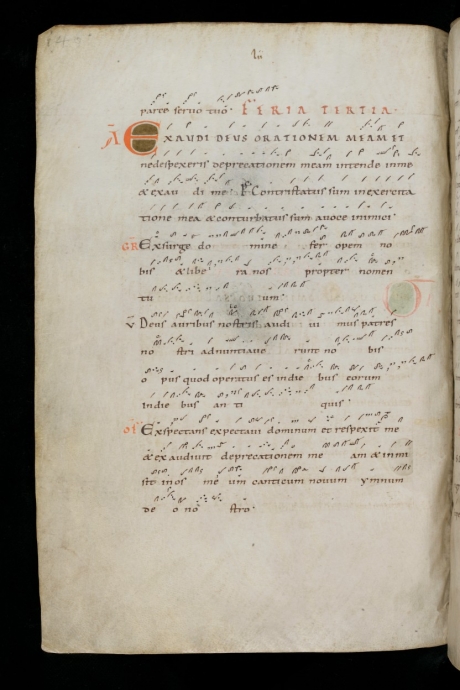 parce servo tuo. FERIA TERTIA.
A EXAUDI DEUS ORATIONEM MEAM ET
nedespexeris deprecationem meam intende inme
& exau di me. P Contristatus sum inexercita
tione mea & conturbatus sum avoce inimici.
GR Exsurge do mine fer opem no
bis & libe ra nos propter nomen
tu um.
V Deus auribus nostris audi vi mus patres
no stri adnuntiave runt no bis
o pus quod operatus es indie bus eorum
indie bus an ti quis.
OF Exspectans expectavi dominum et respexit me
& exaudivit deprecationem me am & inmi
sit in os me um canticum novum ymnum
de o no stro.